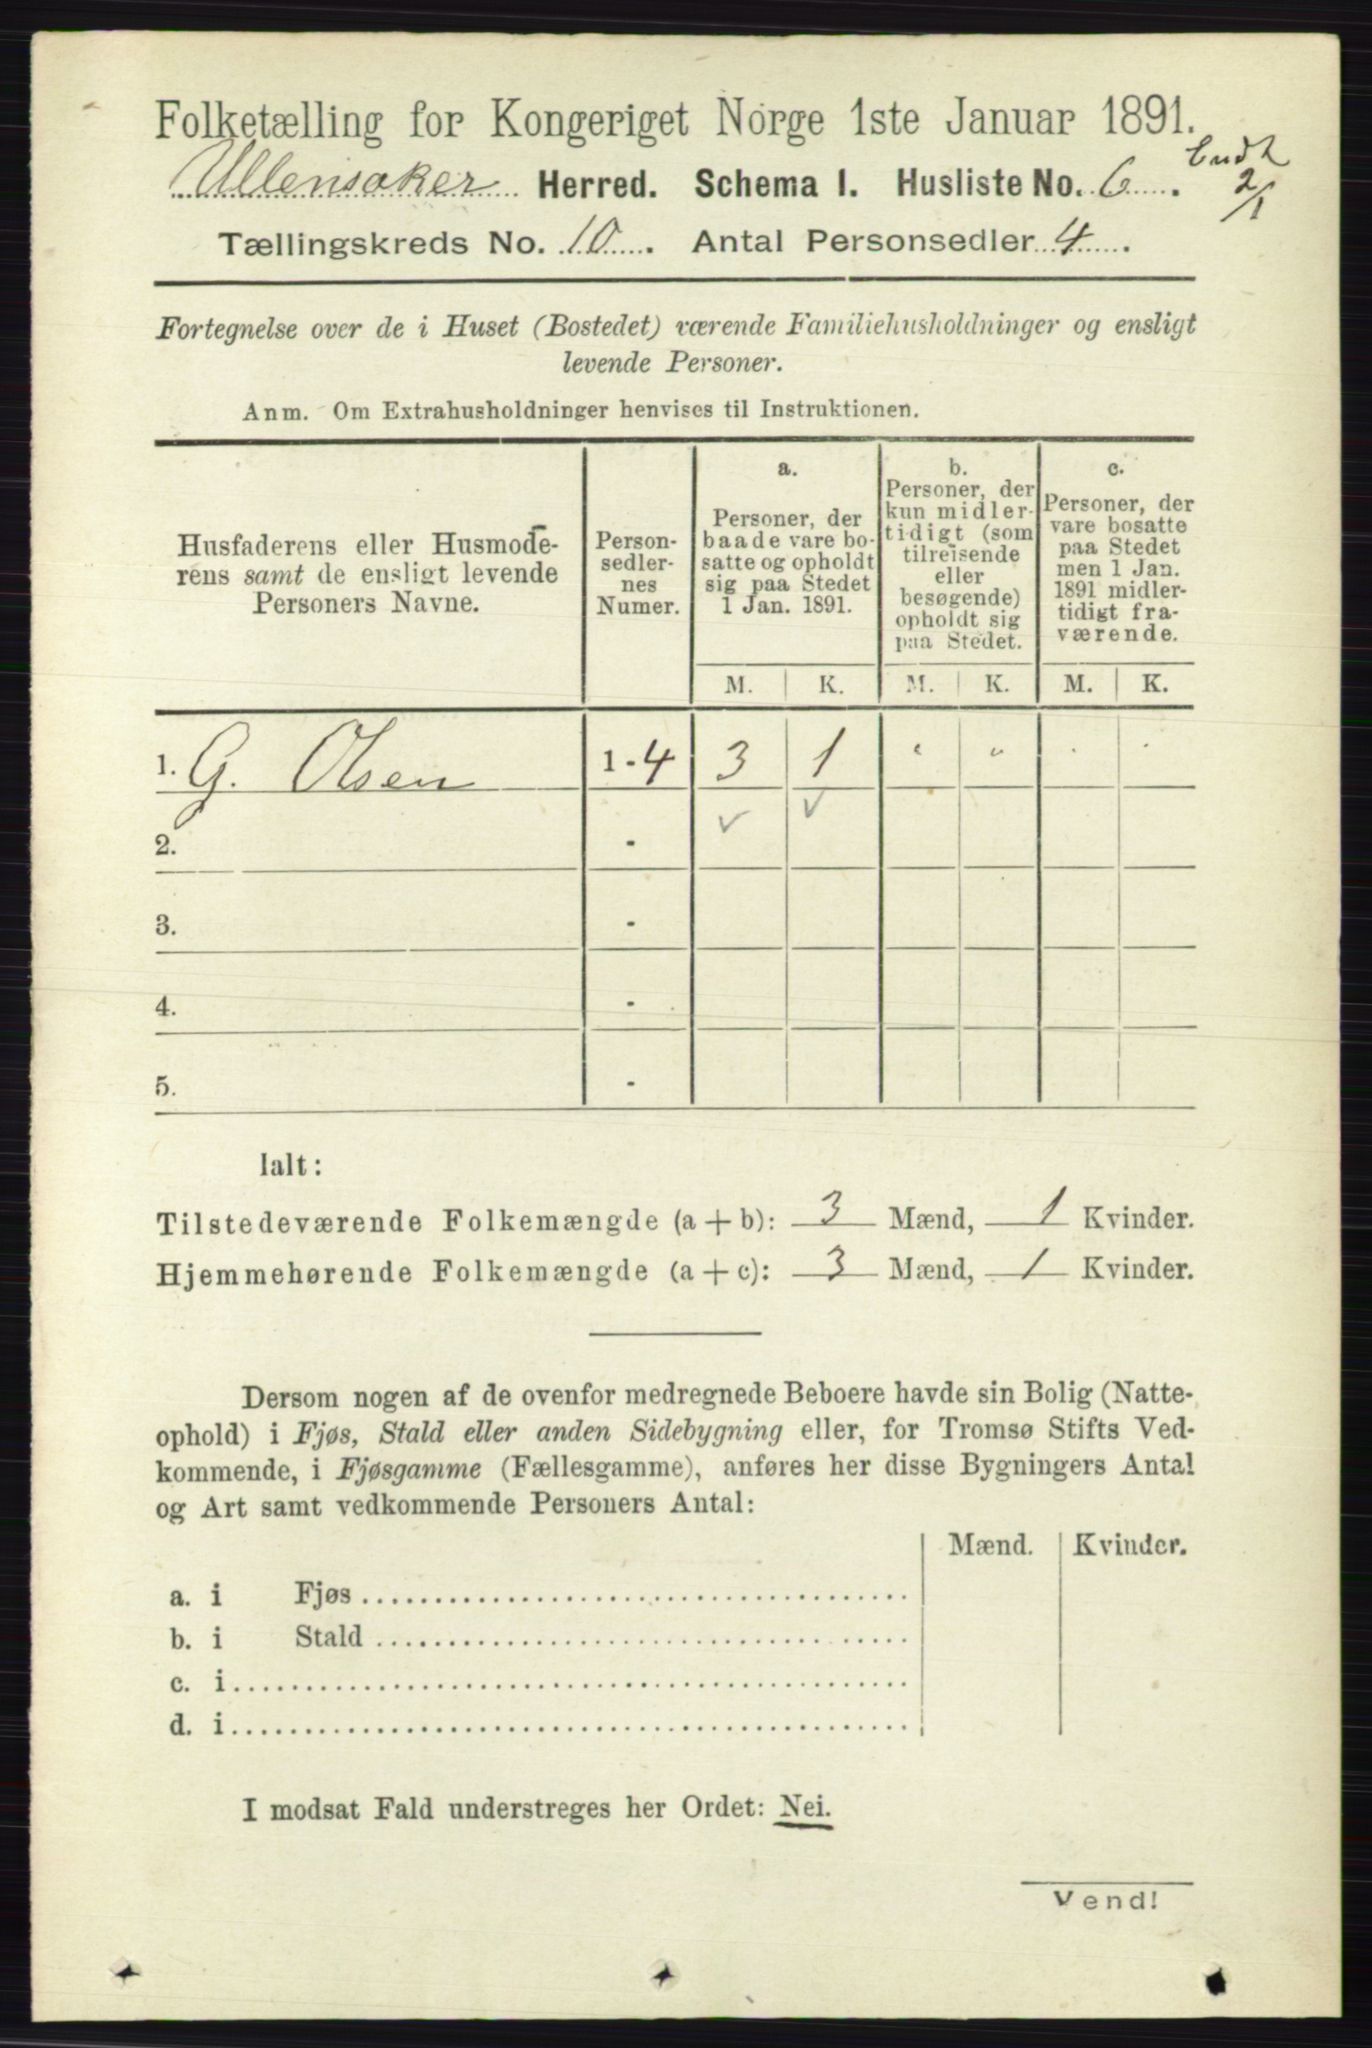 Folketælling for Kongeriget Norge 1ste Januar 1891.
Ullensaker Herred. Schema I. Husliste No. 6.
2/1
Tællingskreds No. 10. Antal Personsedler 4.
Fortegnelse over de i Huset (Bostedet) værende Familiehusholdninger og ensligt
levende Personer.
Anm. Om Extrahusholdninger henvises til Instruktionen.
Husfaderens eller Husmode-
rens samt de ensligt levende
Personers Navne.
Person-
sedler-
nes
Numer.
a.
Personer, der
baade vare bo-
satte og opholdt
sig paa Stedet
1 Jan. 1891.
b.
Personer, der
kun midler-
tidigt (som
tilreisende
eller
besøgende)
opholdt sig
paa Stedet.
c.
Personer, der
vare bosatte
paa Stedet
men 1 Jan.
1891 midler-
tidigt fra-
værende.
M. K. M. K. M. K.
1. G. Olsen 1-4 3 1 " "
2. - ✓ ✓
3. -
4. -
5. -
Ialt:
Tilstedeværende Folkemængde (a + b): 3 Mænd, 1 Kvinder.
Hjemmehørende Folkemængde (a + c): 3 Mænd, 1 Kvinder.
Dersom nogen af de ovenfor medregnede Beboere havde sin Bolig (Natte-
ophold) i Fjøs, Stald eller anden Sidebygning eller, for Tromsø Stifts Ved-
kommende, i Fjøsgamme (Fællesgamme), anføres her disse Bygningers Antal
og Art samt vedkommende Personers Antal:
Mænd. Kvinder.
a. i Fjøs
b. i Stald
c. i
d. i
I modsat Fald understreges her Ordet: Nei.
Vend!